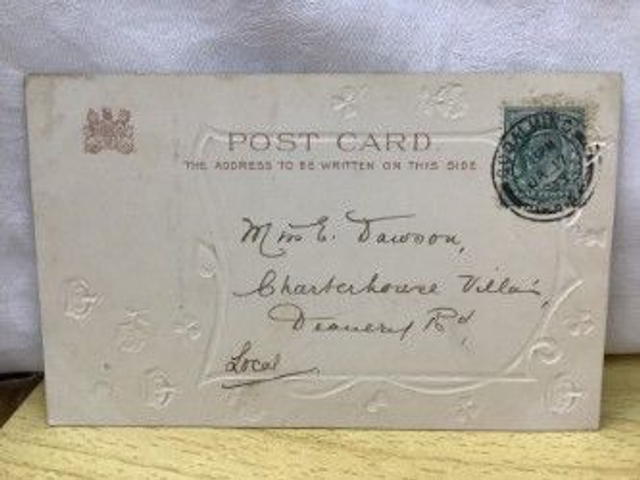 POST CARD.
THE ADDRESS TO BE WRITTEN ON THIS SIDE
Miss E. Dawson,
Charterhouse Villas,
Deanery Rd,
Local